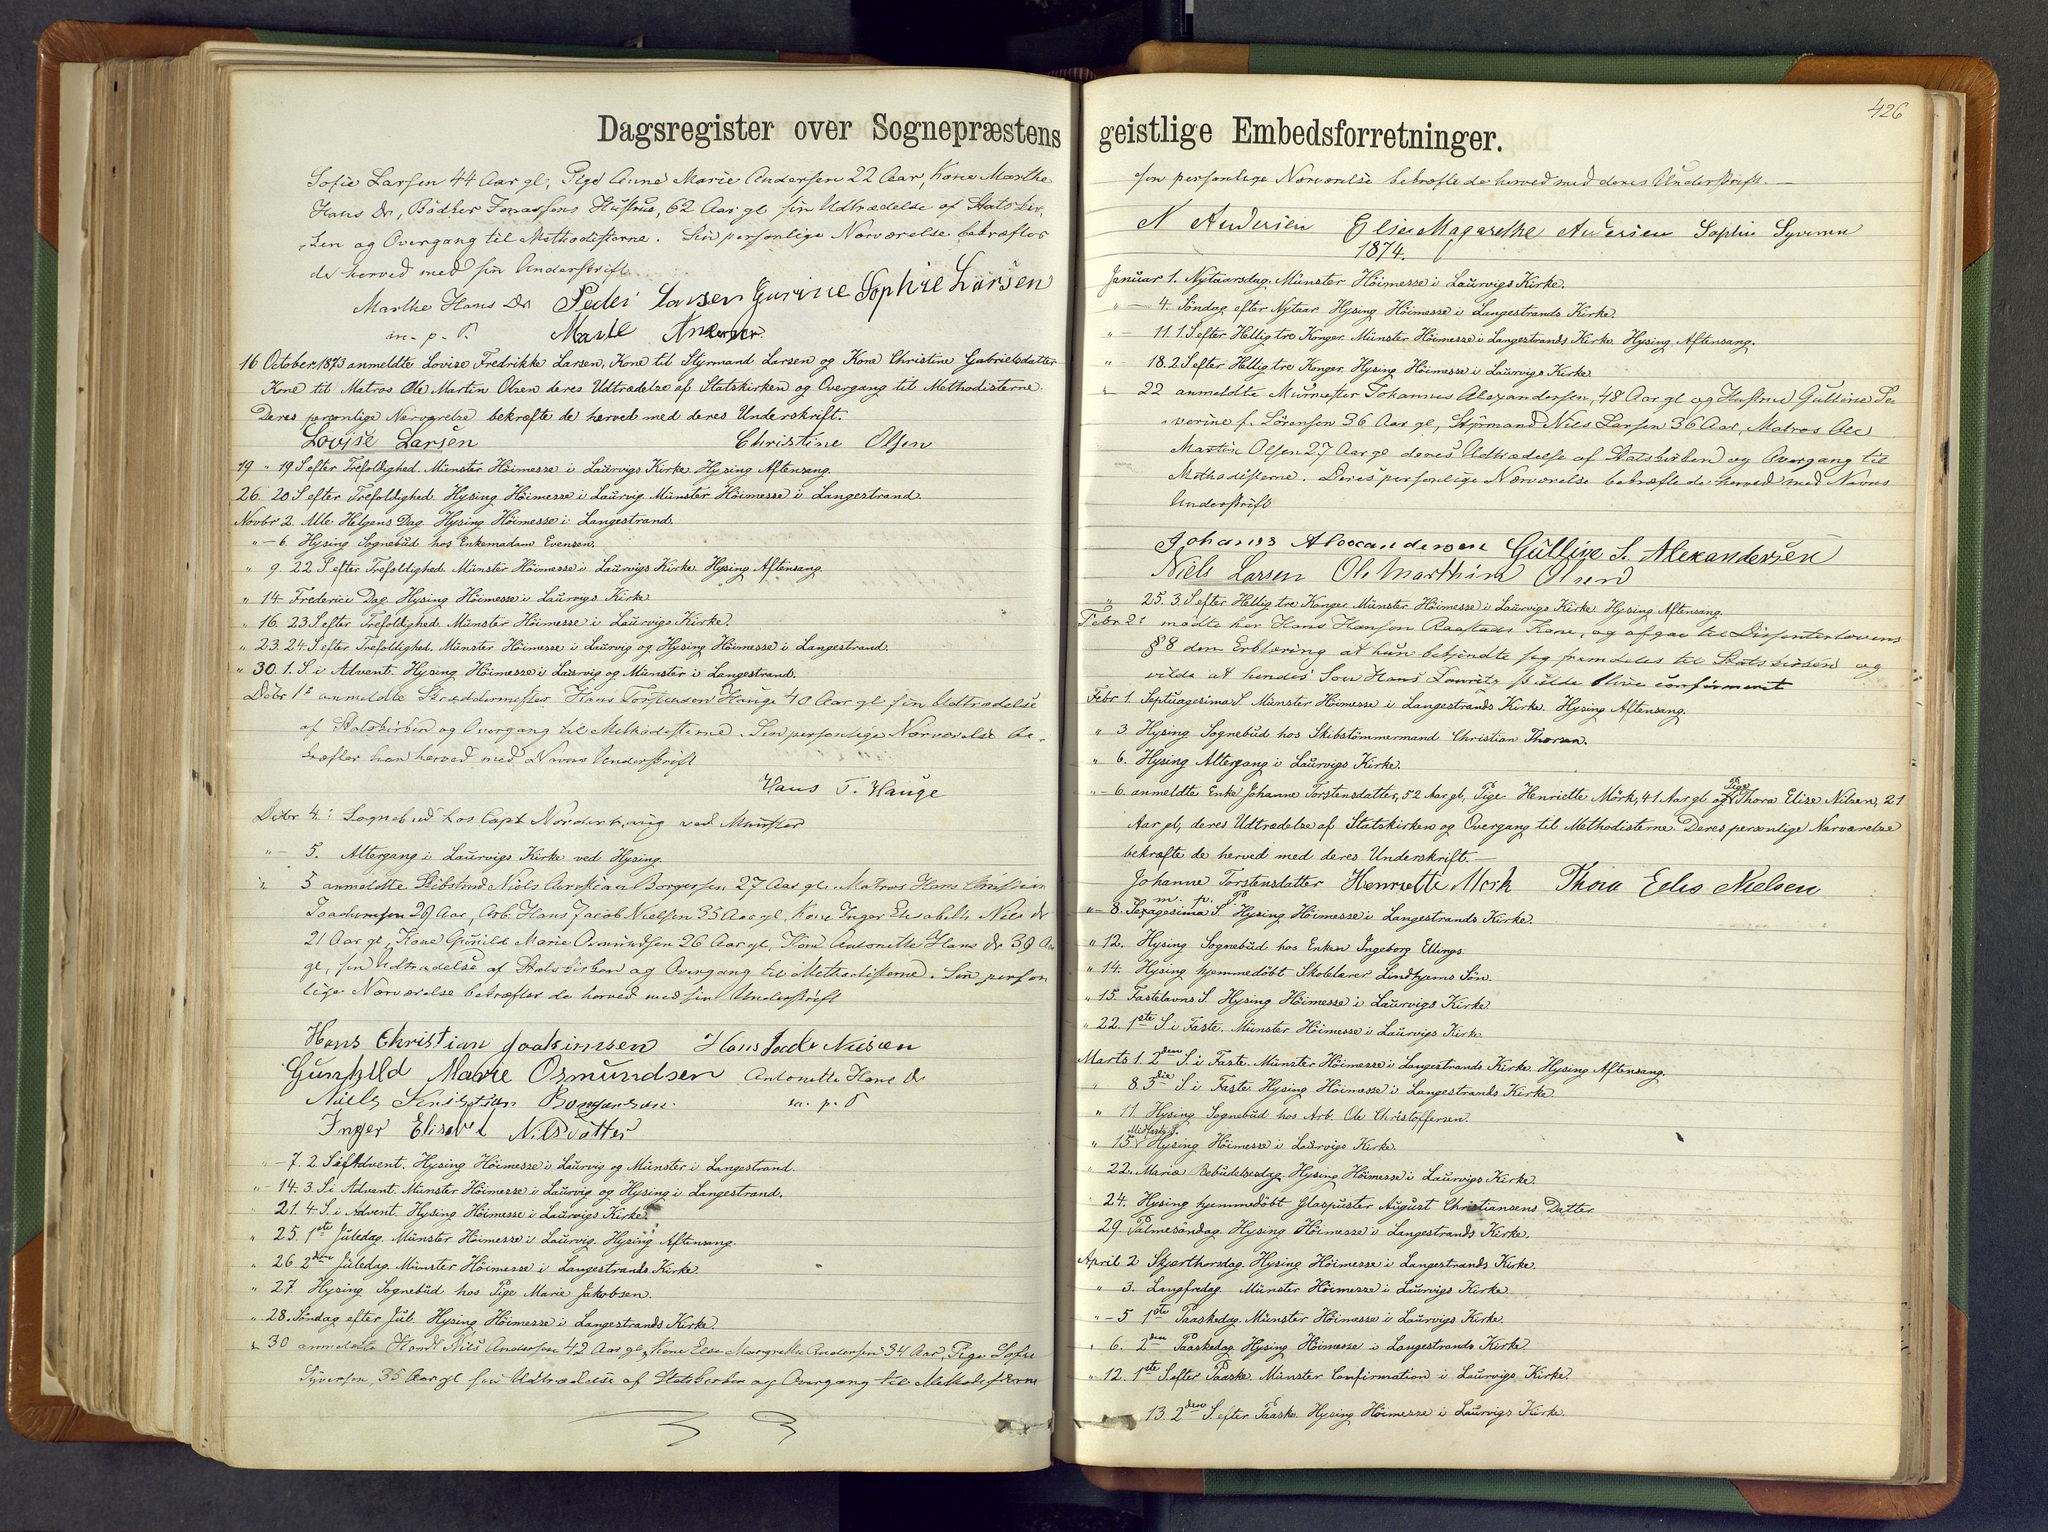 Dagsregister over Sognepræstens
Sofie Larsen 44 Aar gl, Pige Anne Marie Andersen 22 Aar, Kone Marthe
Hans Dr, Bødker Jonassens Hustrue, 62 Aar gl sin Udtrædelse af Statskir-
ken og Overgang til Methodisterne. Sin personlige Nærværelse bekræfter
de herved med sin Underskrift
Marthe Hans Dr Peder Larsen Gurine Sophie Larsen
m. p. P. Marie Andersen
16 October 1873 anmeldte Lovise Fredrikke Larsen, Kone til Styrmand Larsen og Kone Christine Gabrielsdatter
Kone til Matros Ole Martin Olsen deres Udtrædelse af Statskirken og Overgang til Methodisterne.
Deres personlige Nærværelse bekræfte de herved med deres Underskrift.
Lovise Larsen Christine Olsen
19 " 19 S efter Trefoldighed. Münster Höimesse i Laurvigs Kirke Hysing Aftensang.
26. 20 S efter Trefoldighed. Hysing Höimesse i Laurvig Münster Höimesse i Langestrand.
Novbr 2. Alle Helgens Dag Hysing Höimesse i Langestrand.
" - 6. Hysing Sognebud hos Enkemadam Evensen.
" 9. 22 S efter Trefoldighed. Münster Höimesse i Laurvigs Kirke Hysing Aftensang.
" 14 Frederici Dag. Hysing Höimesse i Laurvigs Kirke
" 16. 23 S efter Trefoldighed. Münster Höimesse i Laurvigs Kirke.
" 23. 24. S efter Trefoldighed. Münster Höimesse i Laurvig og Hysing Höimesse i Langestrand.
" 30. 1. S. i Advent. Hysing Höimesse i Laurvig og Münster i Langestrand.
Debr 1e anmeldte Skræddermester Hans Torstensen Hauge 40 Aar gl sin Udtrædelse
af Statskirken og Overgang til Methodisterne. Sin personlige Nærværelse be-
kræfter han herved med Navns Underskrift
Hans T. Hauge
Debr 4.: Sognebud hos Capt Norderhaug ved Münster
" - 5. Altergang i Laurvigs Kirke ved Hysing.
" 5 anmeldte Niels Borgersen 27 Aar gl. Matros Hans Christian
Joachimsen 29 Aar, Arb. Hans Jacob Nielsen 35 Aar gl, Kone Inger Elisabeth Niels Dr
21 Aar gl, Kone Gunild Marie Osmundsen 26 Aar gl, Kone Antonette Hans Dr 39 Aar
gl, sin Udtrædelse af Statskirken og Overgang til Methodisterne. Sin person
lige Nærværelse bekræfter de herved med sin Underskrift
Hans Christian Joakimsen Hans Jacob Nielsen
Gunhild Marie Osmundsen Antonette Hans Dr
Niels m. p. P
Inger Elisabet Nilsdatter
" - 7. 2 S. i Advent. Hysing Höimesse i Laurvig og Münster i Langestrand.
" - 14. 3. S i Advent. Münster Höimesse i Laurvig og Hysing i Langestrand.
" 21. 4 S. i Advent. Hysing Höimesse i Laurvigs Kirke
" 25. 1ste Juledag. Münster Höimesse i Laurvig. Hysing Aftensang
" 26. 2den Juledag. Münster Höimesse i Langestrands Kirke.
" 27. Hysing Sognebud hos Pige Marie Jakobsen.
" 28. Søndag efter Jul. Hysing Höimesse i Langestrands Kirke
" 30 anmeldte Nils Andersen 42 Aar gl, Kone Else Margrethe Andersen 34 Aar, Pige Sofie
Syversen, 35 Aar gl sin Udtrædelse af Statskirken og Overgang til Methodisterne
426
geistlige Embedsforretninger.
sin personlige Nærværelse bekræfte de herved med deres Underskrift.
N Andersen Elsie Magarethe Andersen Sophie Syversen
1874.
Januar 1. Nytaarsdag. Münster Höimesse i Laurvigs Kirke.
" - 4. Søndag efter Nytaar Hysing Höimesse i Langestrands Kirke.
" - 11. 1 S efter Hellig tre Konger. Münster Höimesse i Langestrands Kirke. Hysing Aftensang.
" 18. 2 S efter Hellig tre Konger. Hysing Höimesse i Laurvigs Kirke
" 22 anmeldte Murmester Johannes Alexandersen, 48 Aar gl og Hustrue Gulline Se
verine f. Sörensen 36 Aar gl, Styrmand Niels Larsen 36 Aar, Matros Ole
Martin Olsen 27 Aar gl deres Udtrædelse af Statskirken og Overgang til
Methodisterne. Deres personlige Nærværelse bekræfte de herved med Navns
Underskrift
Johans Alexandersen Gulline S. Alexandersen
Niels Larsen Ole Marthin Olsen
" 25. 3. S efter Hellig tre Konger Münster Höimesse i Laurvigs Kirke Hysing Aftensang.
Febr 2: mødte her Hans Hansen Raastads Kone, og afgav til Dissenterlovens
§ 8 den Erklæring at hun bekjendte sig fremdeles til Statskirken og
vilde at hendes Søn Hans Lauritz skulde blive confirmeret
Febr 1. Septuagesima S. Münster Höimesse i Langestrands Kirke. Hysing Aftensang.
" 3. Hysing Sognebud hos Skibstömmermand Christian Thorsen.
" 6. Hysing Altergang i Laurvigs Kirke.
" - 6. anmeldte Enke Johanne Torstensdatter, 52 Aar gl, Pige Henriette Mörk, 41 Aar gl og Pige Thora Elise Nilsen, 21
Aar gl, deres Udtrædelse af Statskirken og Overgang til Methodisterne. Deres personlige Nærværelse
bekræfte de herved med deres Underskrift. -
Johanne Torstensdatter Henriette Mørk Thora Nielsen
m. p. P
" - 8. Sexagesima S. Hysing Höimesse i Langestrands Kirke.
" 12. Hysing Sognebud hos Enken Ingeborg Ellings.
" 14. Hysing hjemmedöbt Skolelærer Lindhjems Søn.
" 15. Fastelavns S. Hysing Höimesse i Laurvigs Kirke
" 22. 1ste S i Faste. Münster Höimesse i Laurvigs Kirke.
Marts 1. 2den S. i Faste. Münster Höimesse i Langestrands Kirke. Hysing Aftensang.
" 8. 3die S i Faste. Hysing Höimesse i Langestrands Kirke
" 11. Hysing Sognebud hos Arb. Ole Christoffersen.
" 15 Midfaste S. Hysing Höimesse i Laurvigs Kirke.
" 22. Mariæ Bebudelsesdag. Hysing Höimesse i Laurvigs Kirke.
24. Hysing hjemmedöbt Glaspuster August Christiansens Datter
29. Palmesöndag. Hysing Höimesse i Langestrands Kirke.
April 2 Skjærthorsdag. Hysing Höimesse i Langestrands Kirke.
" 3. Langfredag. Münster Höimesse i Laurvigs Kirke.
" - 5 1ste Paaskedag. Münster Höimesse i Laurvigs Kirke.
" 6. 2den Paaskedag Hysing Höimesse i Langestrands Kirke
" 12. 1ste S. efter Paaske. Münster Confirmation i Laurvigs Kirke.
13. 2den S. efter Paaske. Hysing Höimesse i Laurvigs Kirke.